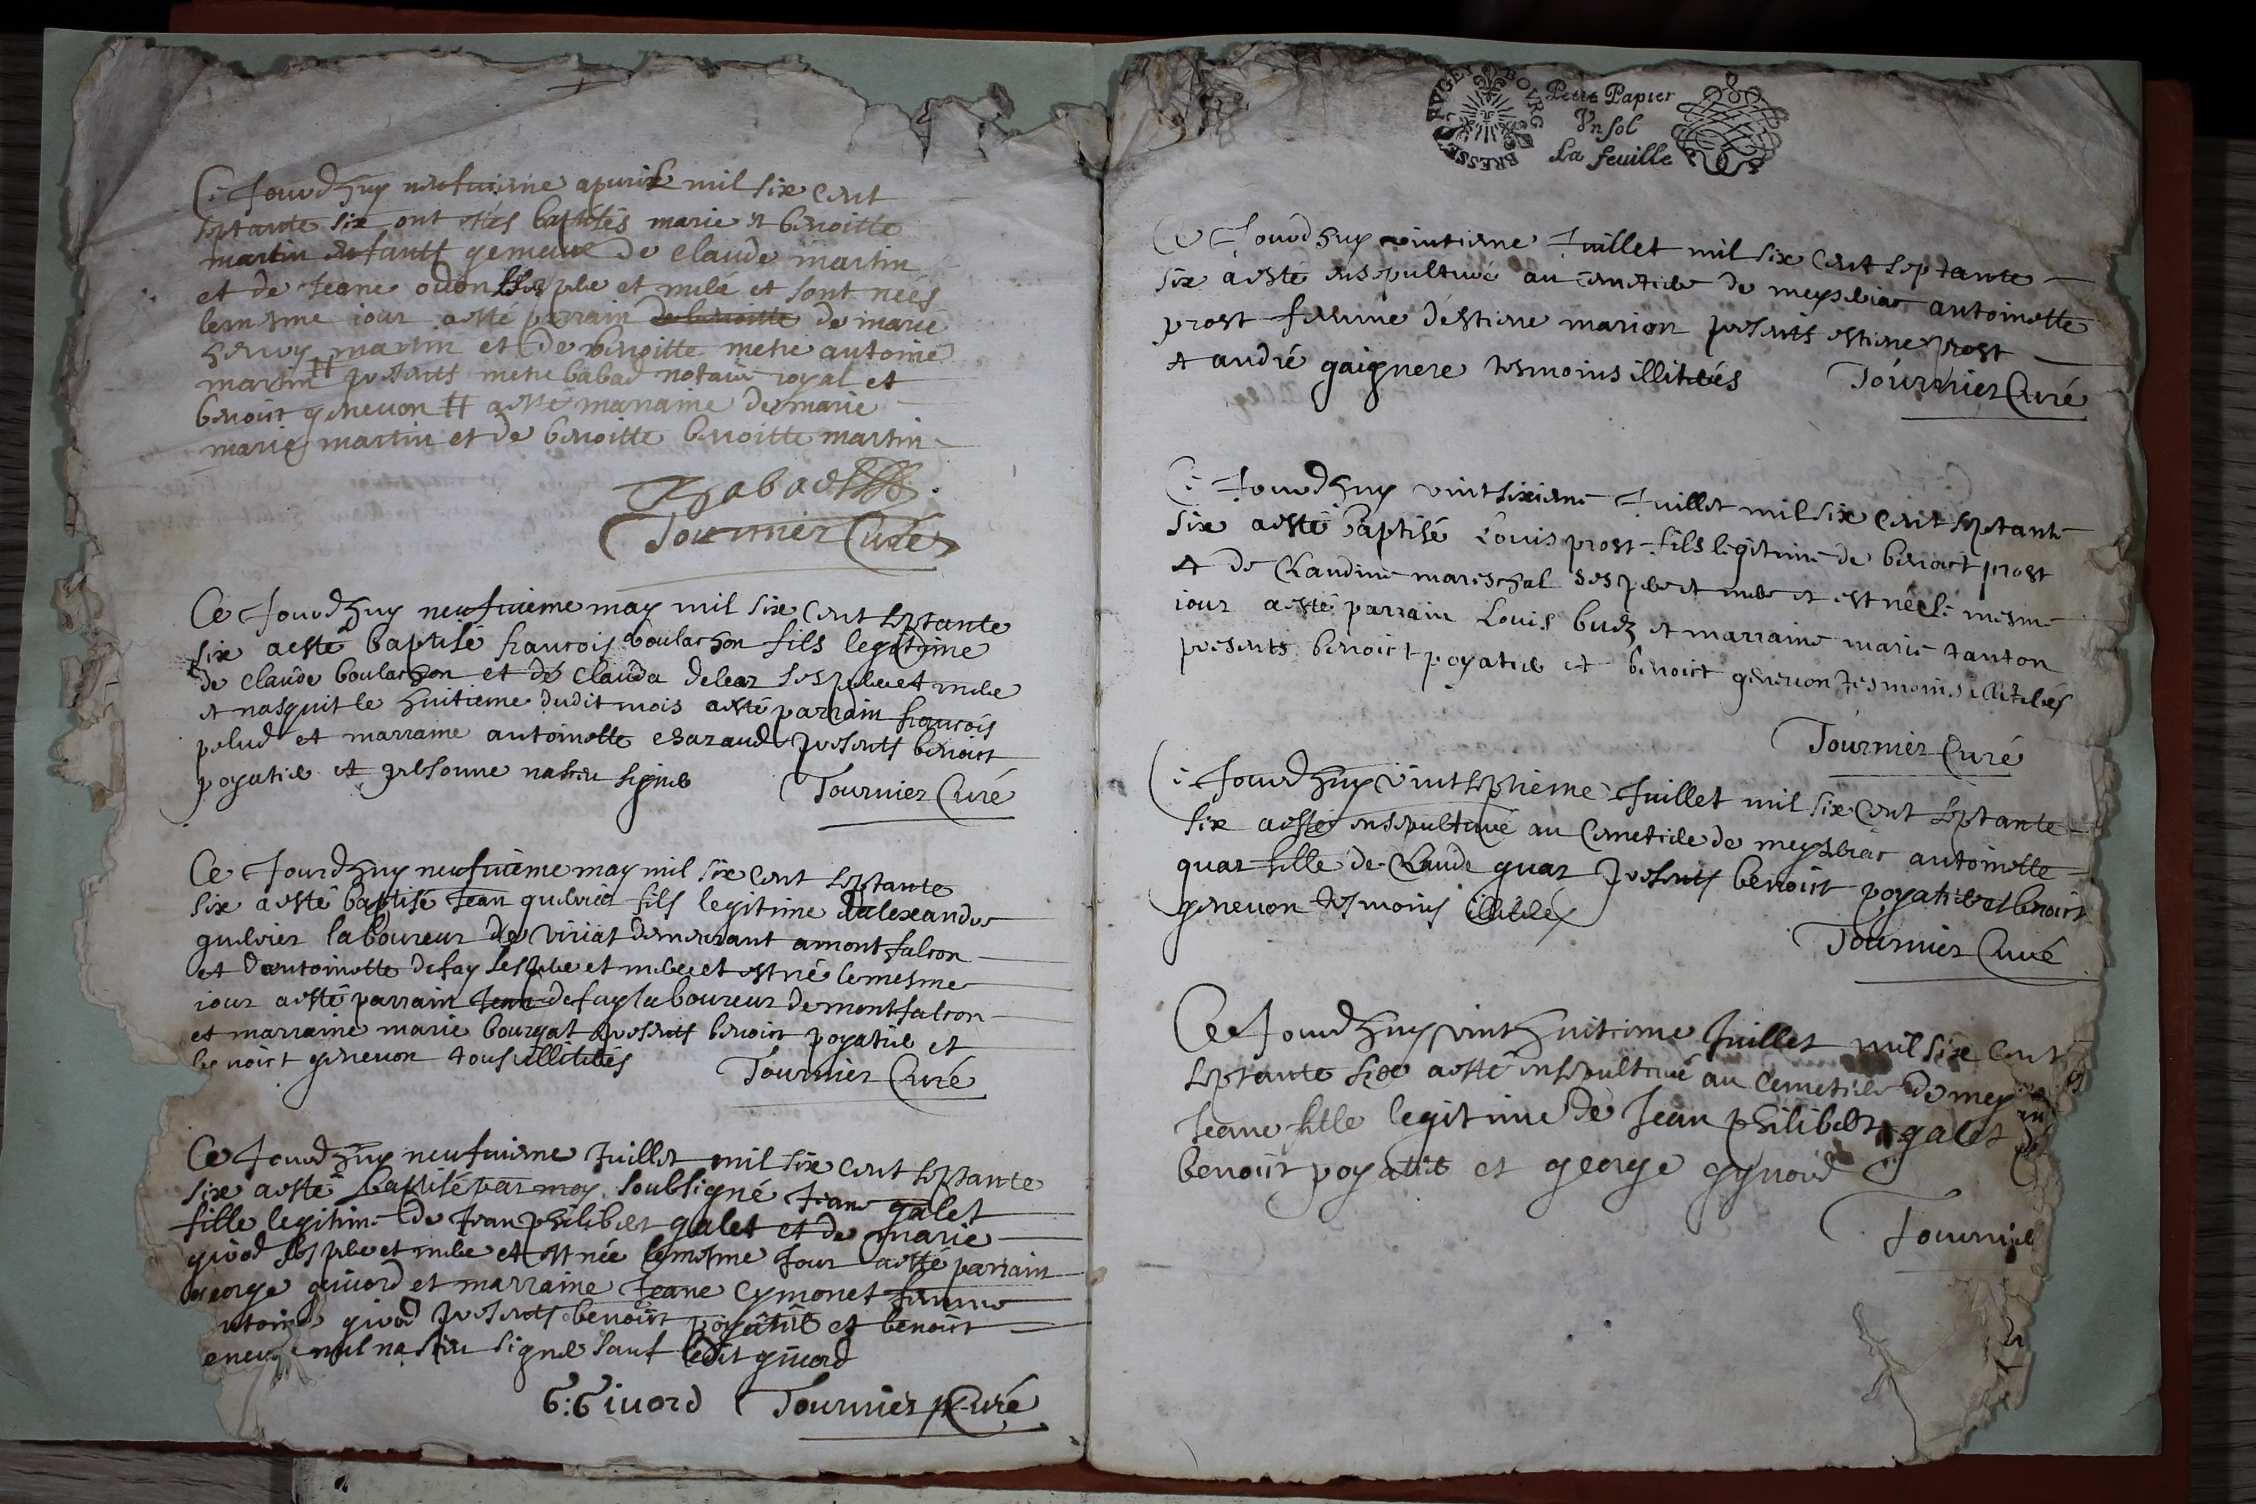 Ce Jourd'huy neufuieme apuril mil six cent
septante six ont estés baptisés marie et benoitte
martin enfants gemeaux de claude martin
et de Jeane odon ses pere et mere et sont nees
lemesme iour a esté parrain de benoitte de marie
martin et de benoitte metre antoine
martin # presents metre babad notaire royal et
benoist geneuon # a esté marraine de marie
marie martin et de benoitte benoitte martin
Babad
Tournier Curé
Ce Jourd'huy neufuieme may mil six cent septante
six a esté baptisé francois boulachon fils legitime
de claude boulachon et de clauda deleaz ses pere et mere
et nasquit le huitieme dudit mois a esté parrain francois
pelud et marraine antoinette chazaud presents benoist
poyatier et personne na sceu signer Tournier Curé
Ce Jourd'huy neufuieme may mil six cent septante
six a esté baptisé Jean fils legitime dalexandre
laboureur de viriat demeurant a montfalcon
et dantoinette defay ses pere et mere et est né lemesme
iour a esté parrain Jean defay laboureur de montfalcon
et marraine marie bourgat presents benoist poyatier et
benoist geneuon tous illiterés Tournier Curé
Ce Jourd'huy neufuieme Juillet mil six cent septante
six a esté baptisé par moy soubsigné Jeane galet
fille legitime de Jean philibert galet et de marie
giuord ses pere et mere et est née lemesme Jour a esté parrain
george giuord et marraine Jeane Cymonet femme
ntoine giuord presents benoist poyatier et benoist
eneuon nul na sceu signer sauf ledit giuord
G: Giuord Tournier Curé
BOVRG BRESSE BVGEY
Petit Papier
Vn sol
La feuille
Ce Jourd'huy vintieme Juillet mil six cent septante
six a esté ensepulturé au cemetiere de meyseriat antoinette
prost femme destiene marion presents estiene prost
et andré gaignere tesmoins illiterés Tournier Curé
Ce Jourd'huy vintsixieme Juillet mil six cent septante
six a esté baptisé Louis prost fils legitime de benoist prost
et de Claudine mareschal ses pere et mere et est né le mesme
iour a esté parrain Louis budz et marraine marie tanton
presents benoist poyatier et benoist geneuon tesmoins illiterés
Tournier Curé
Ce Jourd'huy vintseptieme Juillet mil six cent septante
six a esté ensepulturé au Cemetiere de meyseriat antoinette
quaz fille de Claude quaz presents benoist poyatier et benoist
geneuon tesmoins illiterés
Tournier Curé
Ce Jourd'huy vint huitieme Juillet mil six cent
septante six a esté ensepulturé au cemetiere de mey
Jeane fille legitime de Jean philibert galet
benoist poyatier et george gyuord
Tournie